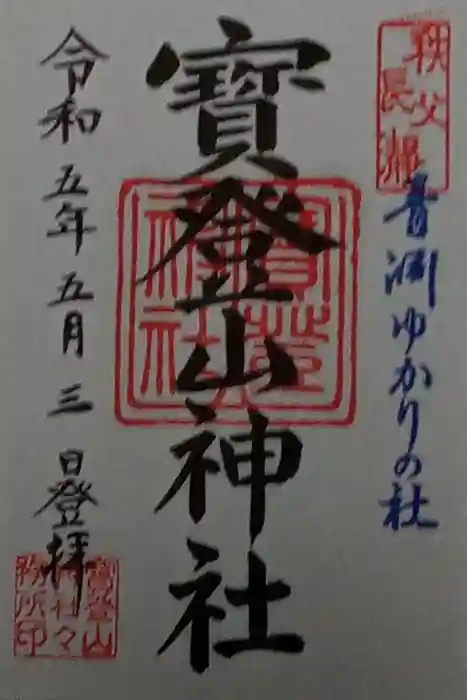 秩父
長瀞
青淵ゆかりの社
寳登山神社
令和五年五月三日登拝
寳登山
神社々
務所印